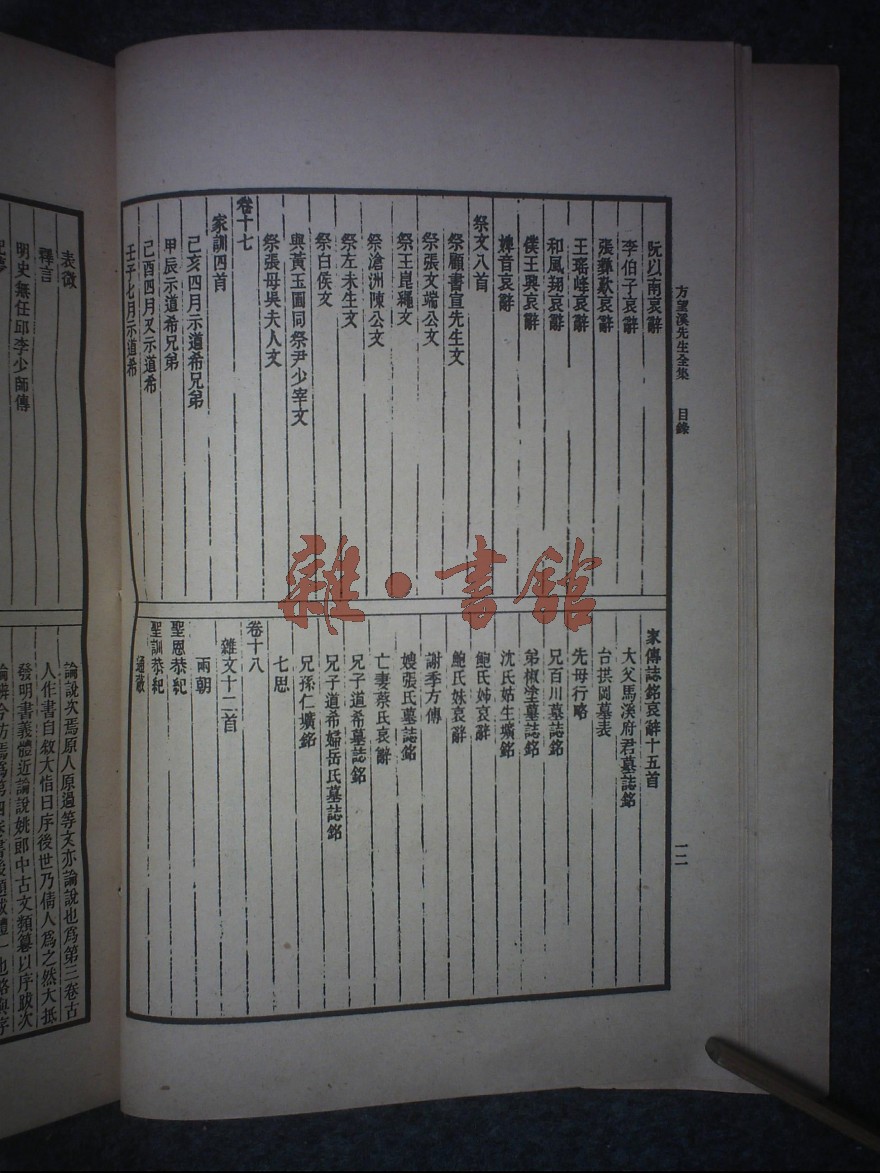 方望溪先生全集 目錄
一二
阮以南哀辭
李伯子哀辭
張彝歎哀辭
王瑤峰哀辭
和風翔哀辭
僕王興哀辭
婢音哀辭
祭文八首
祭顧書宣先生文
祭張文端公文
祭王崑繩文
祭滄洲陳公文
祭左未生文
祭白侯文
與黃玉圃同祭尹少宰文
祭張母吳夫人文
卷十七
家訓四首
己亥四月示道希兄弟
甲辰示道希兄弟
己酉四月又示道希
壬子七月示道希
家傳誌銘哀辭十五首
大父馬溪府君墓誌銘
台拱岡墓表
先母行略
兄百川墓誌銘
弟椒塗墓誌銘
沈氏姑生壙銘
鮑氏姊哀辭
鮑氏妹哀辭
謝季方傳
嫂張氏墓誌銘
亡妻蔡氏哀辭
兄子道希墓誌銘
兄子道希婦岳氏墓誌銘
兄孫仁壙銘
七思
卷十八
雜文十二首
兩朝
聖恩恭紀
聖訓恭紀
通蔽
表微
釋言
明史無任邱李少師傳
論說次焉原人原過等文亦論說也爲第三卷古
人作書自敘大恉曰序後世乃倩人爲之然大抵
發明書義體近論說姚郎中古文類纂以序跋次
雜·書館